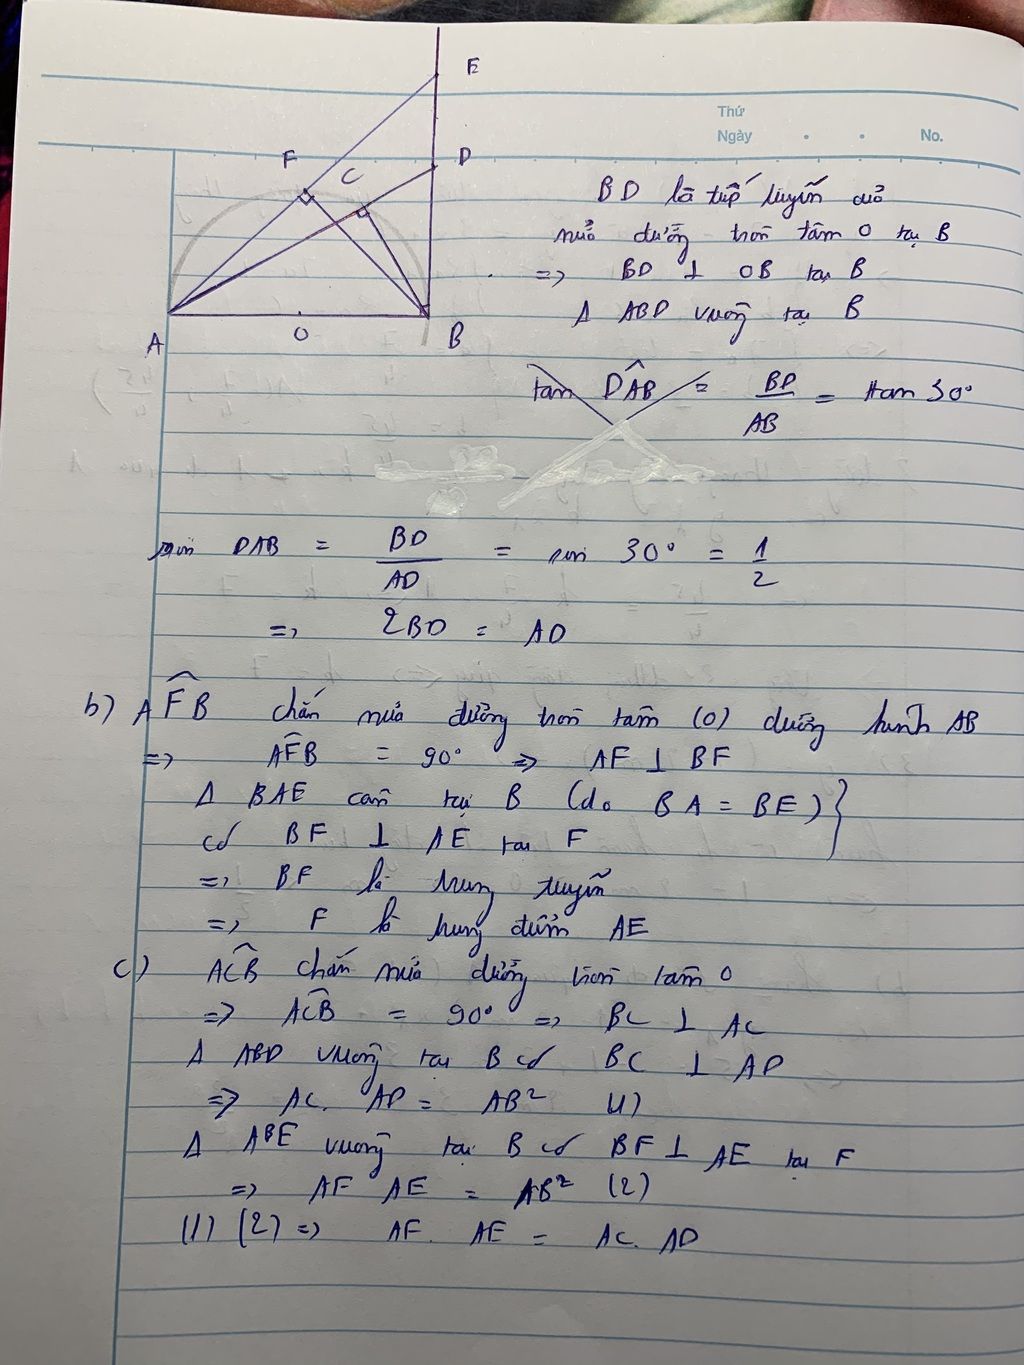 E
Thứ
Ngày . . No.
D
F
C
BD là tiếp tuyến của
nửa đường tròn tâm O tại B
=> BD ⊥ OB tại B
Δ ABD vuông tại B
A
O
B
tan DAB = BD/AB = tan 30°
sin DAB = BD/AD = sin 30° = 1/2
=> 2BD = AD
b) AFB chắn nửa đường tròn tâm (O) đường kính AB
=> AFB = 90° => AF ⊥ BF
Δ BAE cân tại B (do BA = BE) }
có BF ⊥ AE tại F
=> BF là trung tuyến
=> F là trung điểm AE
c) ACB chắn nửa đường tròn tâm O
=> ACB = 90° => BC ⊥ AC
Δ ABD vuông tại B có BC ⊥ AD
=> AC. AD = AB² (1)
Δ ABE vuông tại B có BF ⊥ AE tại F
=> AF AE = AB² (2)
(1) (2) => AF. AE = AC. AD